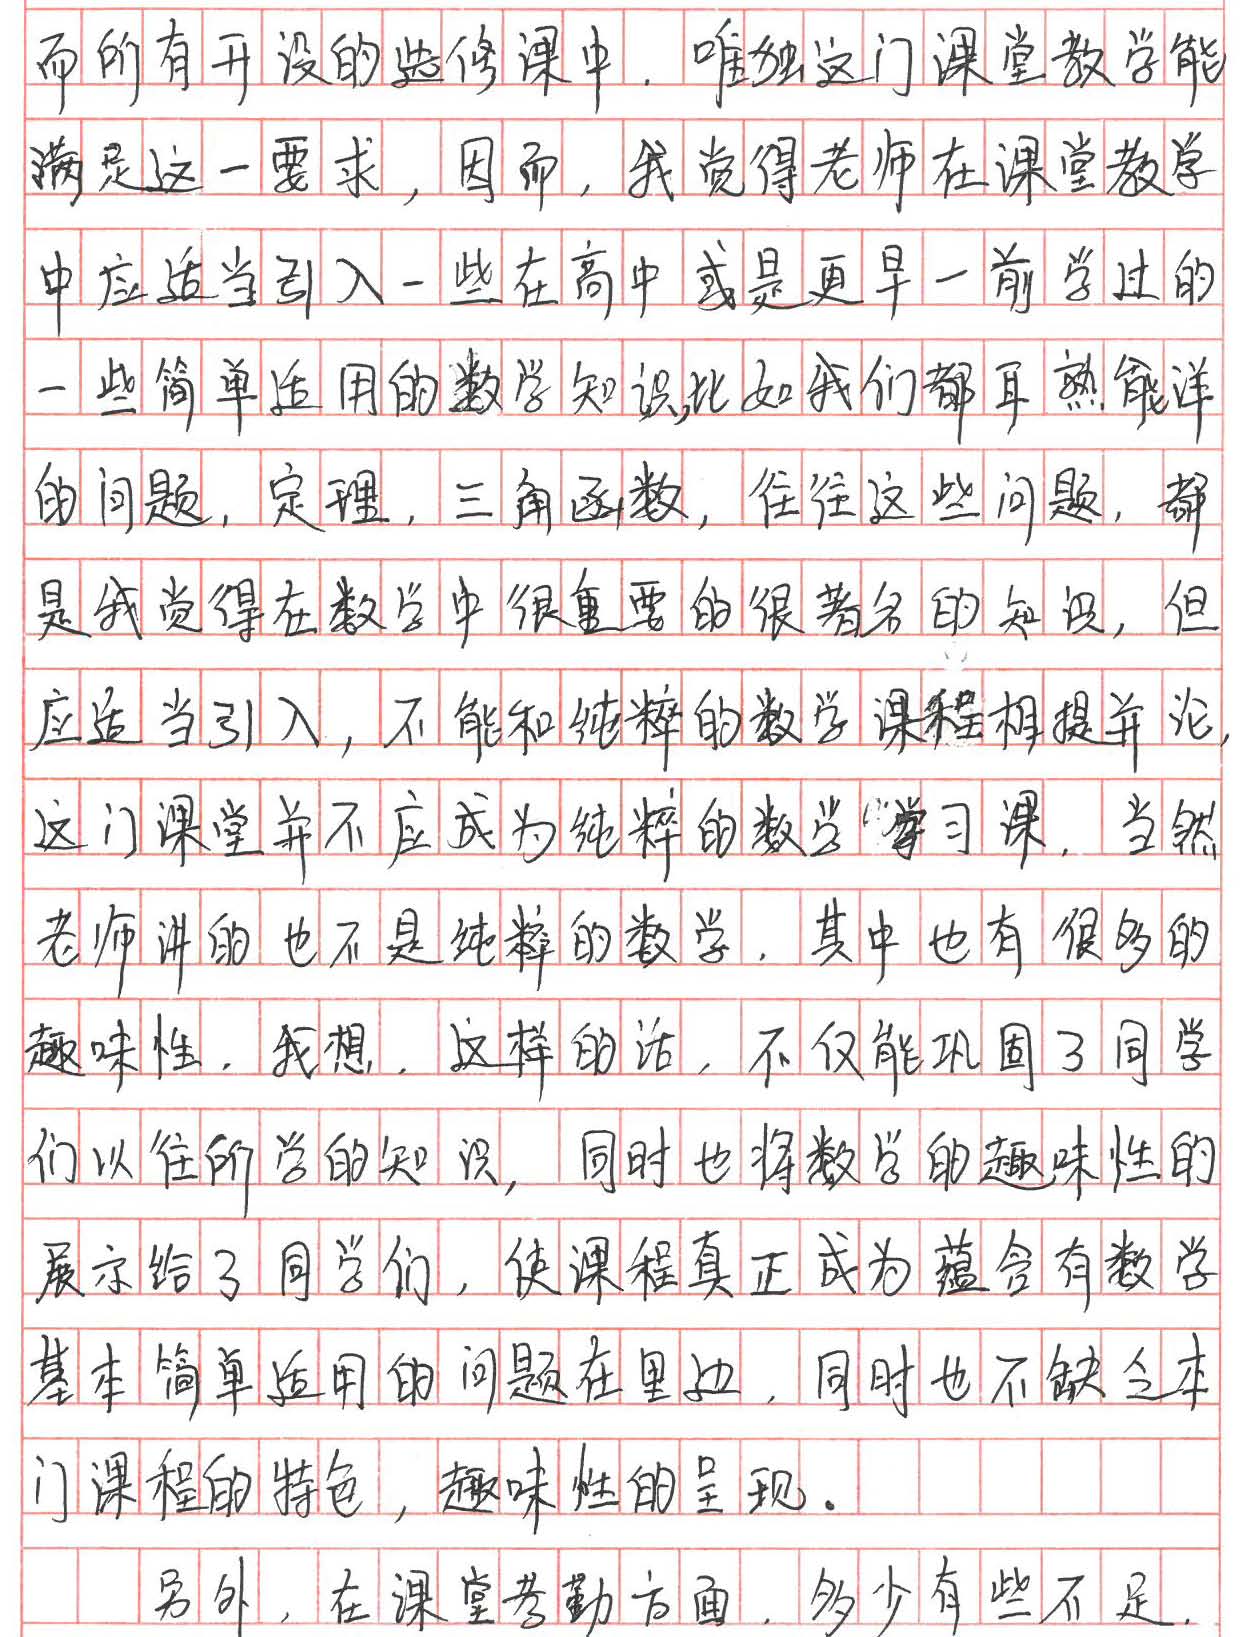 而所有开设的选修课中，唯独这门课堂教学能
满足这一要求，因而，我觉得老师在课堂教学
中应适当引入一些在高中或是更早一前学过的
一些简单适用的数学知识，比如我们都耳熟能洋
的问题，定理，三角函数，往往这些问题，都
是我觉得在数学中很重要的很著名的知识，但
应适当引入，不能和纯粹的数学课程相提并论，
这门课堂并不应成为纯粹的数学学习课，当然
老师讲的也不是纯粹的数学，其中也有很多的
趣味性，我想，这样的话，不仅能巩固了同学
们以往所学的知识，同时也将数学的趣味性的
展示给了同学们，使课程真正成为蕴含有数学
基本简单适用的问题在里边，同时也不缺乏本
门课程的特色，趣味性的呈现。
另外，在课堂考勤方面，多少有些不足，